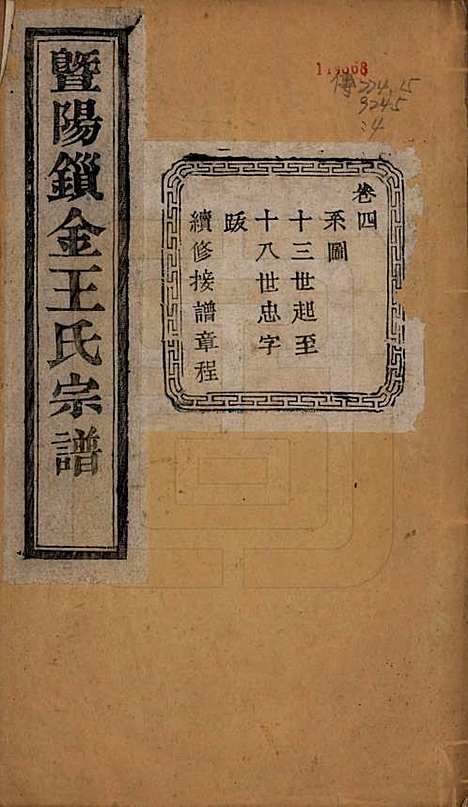 暨陽鎖金王氏宗譜
卷四
系圖
十三世起至
十八世忠字
跋
續修接譜章程
224.15
3245
:4